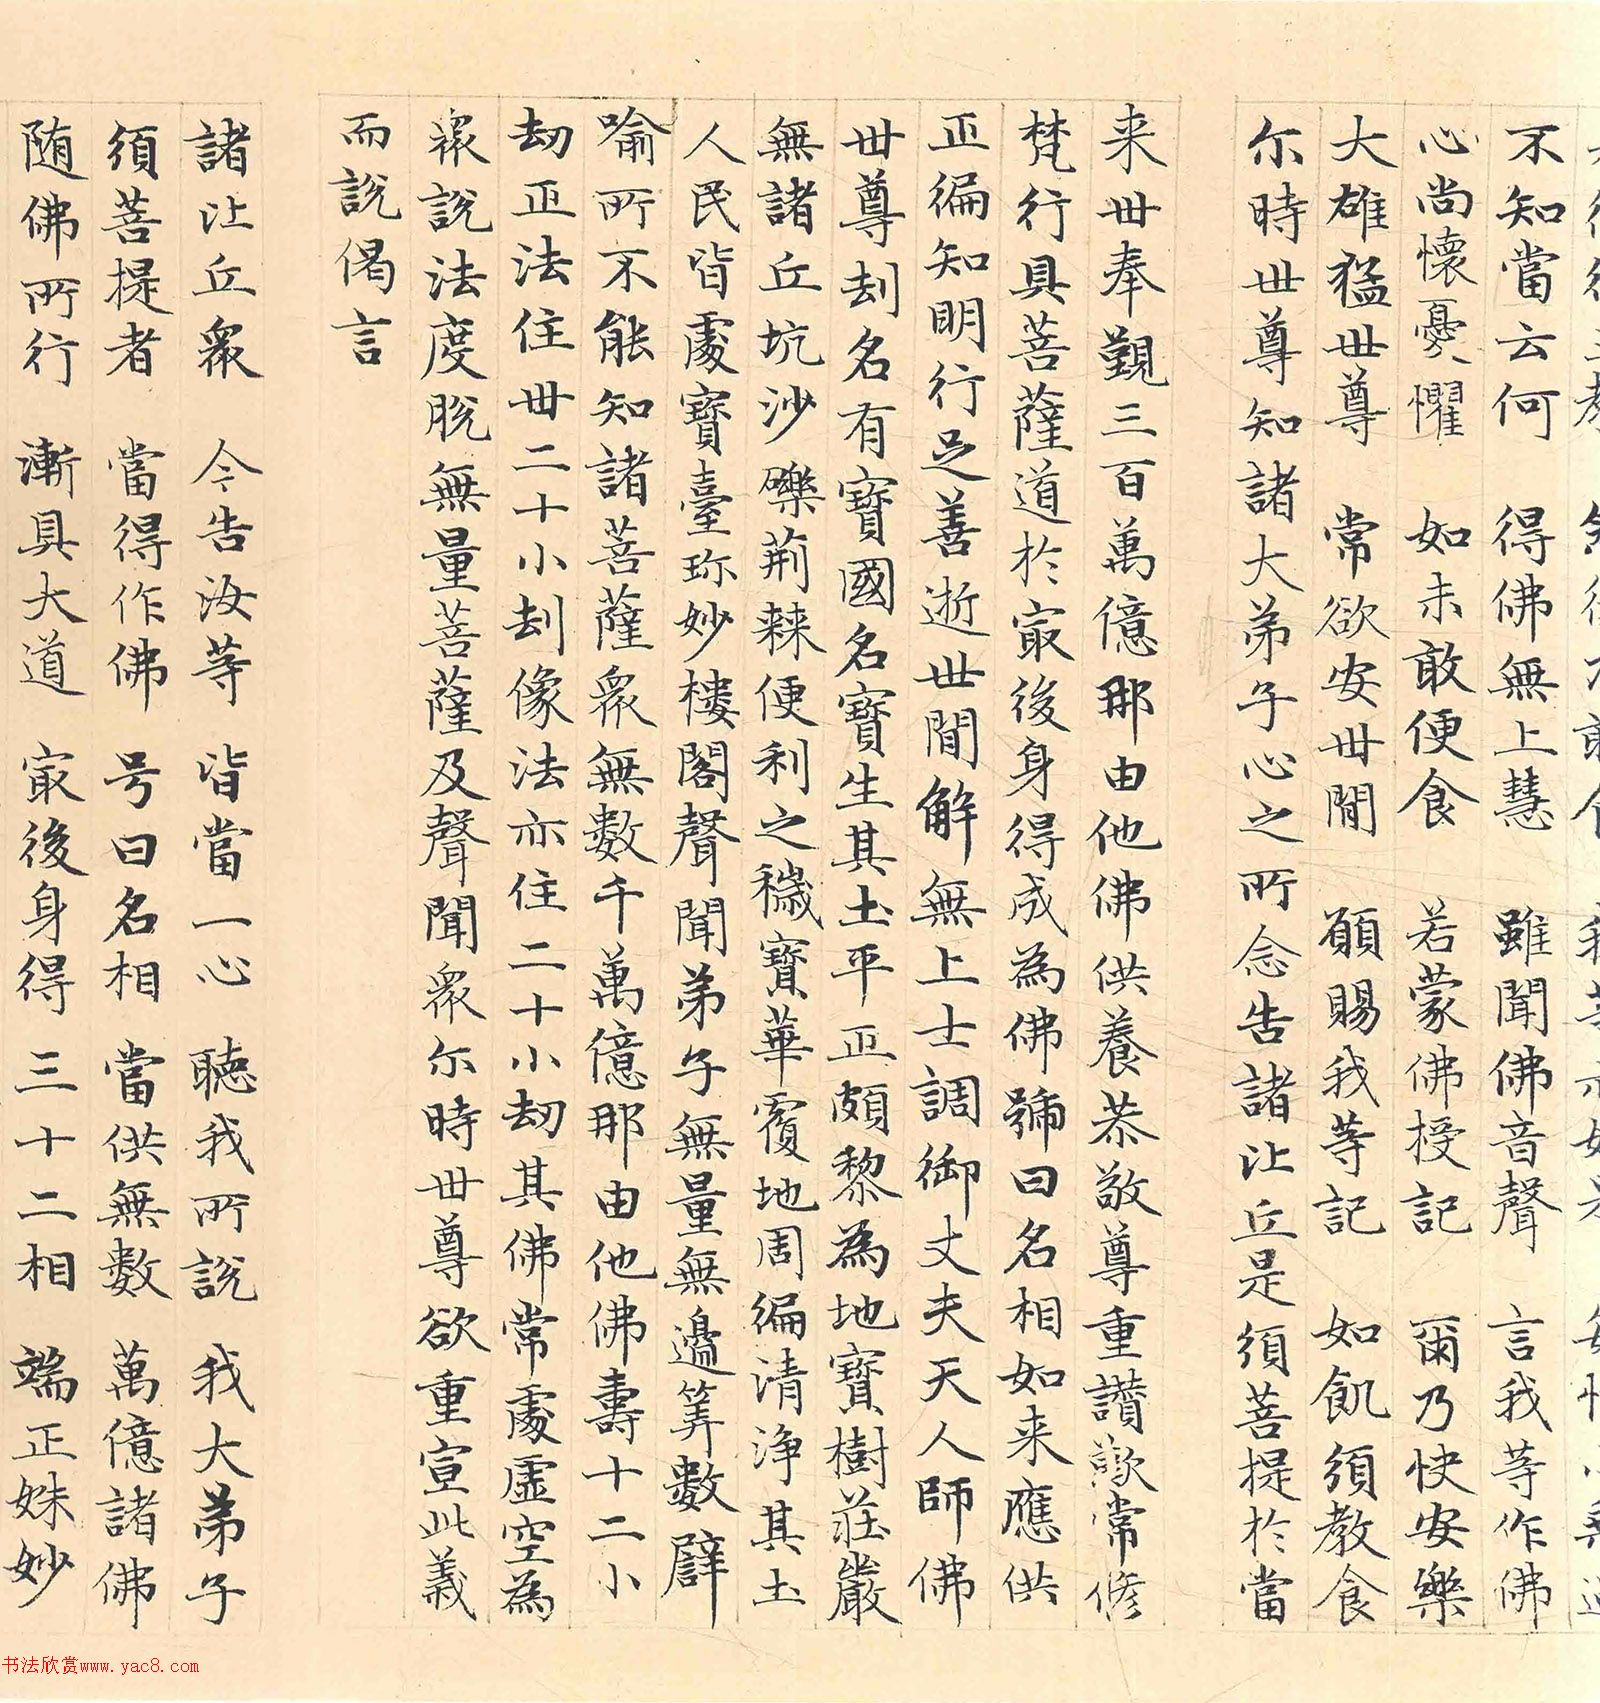 不知當云何 得佛無上慧 雖聞佛音聲 言我等作佛
心尚懷憂懼 如未敢便食 若蒙佛授記 爾乃快安樂
大雄猛世尊 常欲安世間 願賜我等記 如飢須教食
尒時世尊知諸大弟子心之所念告諸比丘是須菩提於當
来世奉覲三百萬億那由他佛供養恭敬尊重讃歎常修
梵行具菩薩道於㝡後身得成為佛號曰名相如来應供
正徧知明行足善逝世間解無上士調御丈夫天人師佛
世尊刧名有寶國名寶生其土平正頗黎為地寶樹莊嚴
無諸丘坑沙礫荊棘便利之穢寶華覆地周徧清淨其土
人民皆處寶臺珎妙樓閣聲聞弟子無量無邊筭數譬
喻所不能知諸菩薩衆無數千萬億那由他佛壽十二小
刧正法住世二十小刧像法亦住二十小刧其佛常處虛空為
衆說法度脫無量菩薩及聲聞衆尒時世尊欲重宣此義
而說偈言
諸比丘衆 今告汝等 皆當一心 聽我所說 我大弟子
須菩提者 當得作佛 号曰名相 當供無數 萬億諸佛
随佛所行 漸具大道 㝡後身得 三十二相 端正姝妙
书法欣赏www.yac8.com